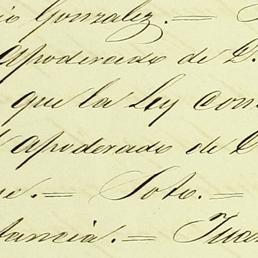 io Gonzalez. =
Apoderado de D.
que la Ley con
Apoderado de
ue. = Soto. =
tancia. = Juan